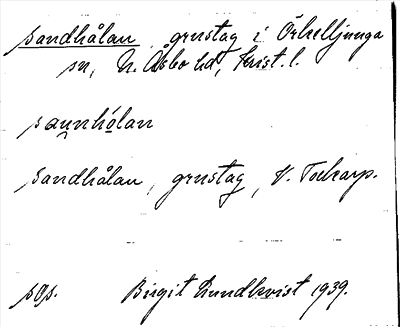 sandhålan, grustag i Örkelljunga
sn, N. Åsbo hd, Krist. l.
saunhólan
sandhålan, grustag, V. Tockarp.
sgs. Birgit Lundkvist 1939.